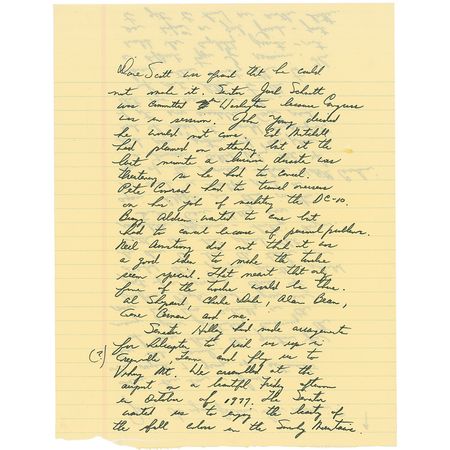 Dave Scott was afraid that he could
not make it. Senator Jack Schmitt
was committed to Washington because Congress
was in session. John Young decided
he would not come. Ed Mitchell
had planned on attending but at the
last minute a business disaster was
threatening so he had to cancel.
Pete Conrad had to travel overseas
on his job of marketing the DC-10.
Buzz Aldrin wanted to come but
had to cancel because of personal problems.
Neil Armstrong did not think it was
a good idea to make the twelve
seem special. That meant that only
five of the twelve would be there.
Al Shepard, Charlie Duke, Alan Bean,
Gene Cernan and me.
Senator Hilley had made arrangements
for helicopter to pick us up in
(?) Greenville, Tenn and fly us to
Viking Mt. We assembled at the
airport on a beautiful Friday afternoon
in October of 1977. The Senator
wanted us to enjoy the beauty of
the fall colors in the Smoky Mountains.